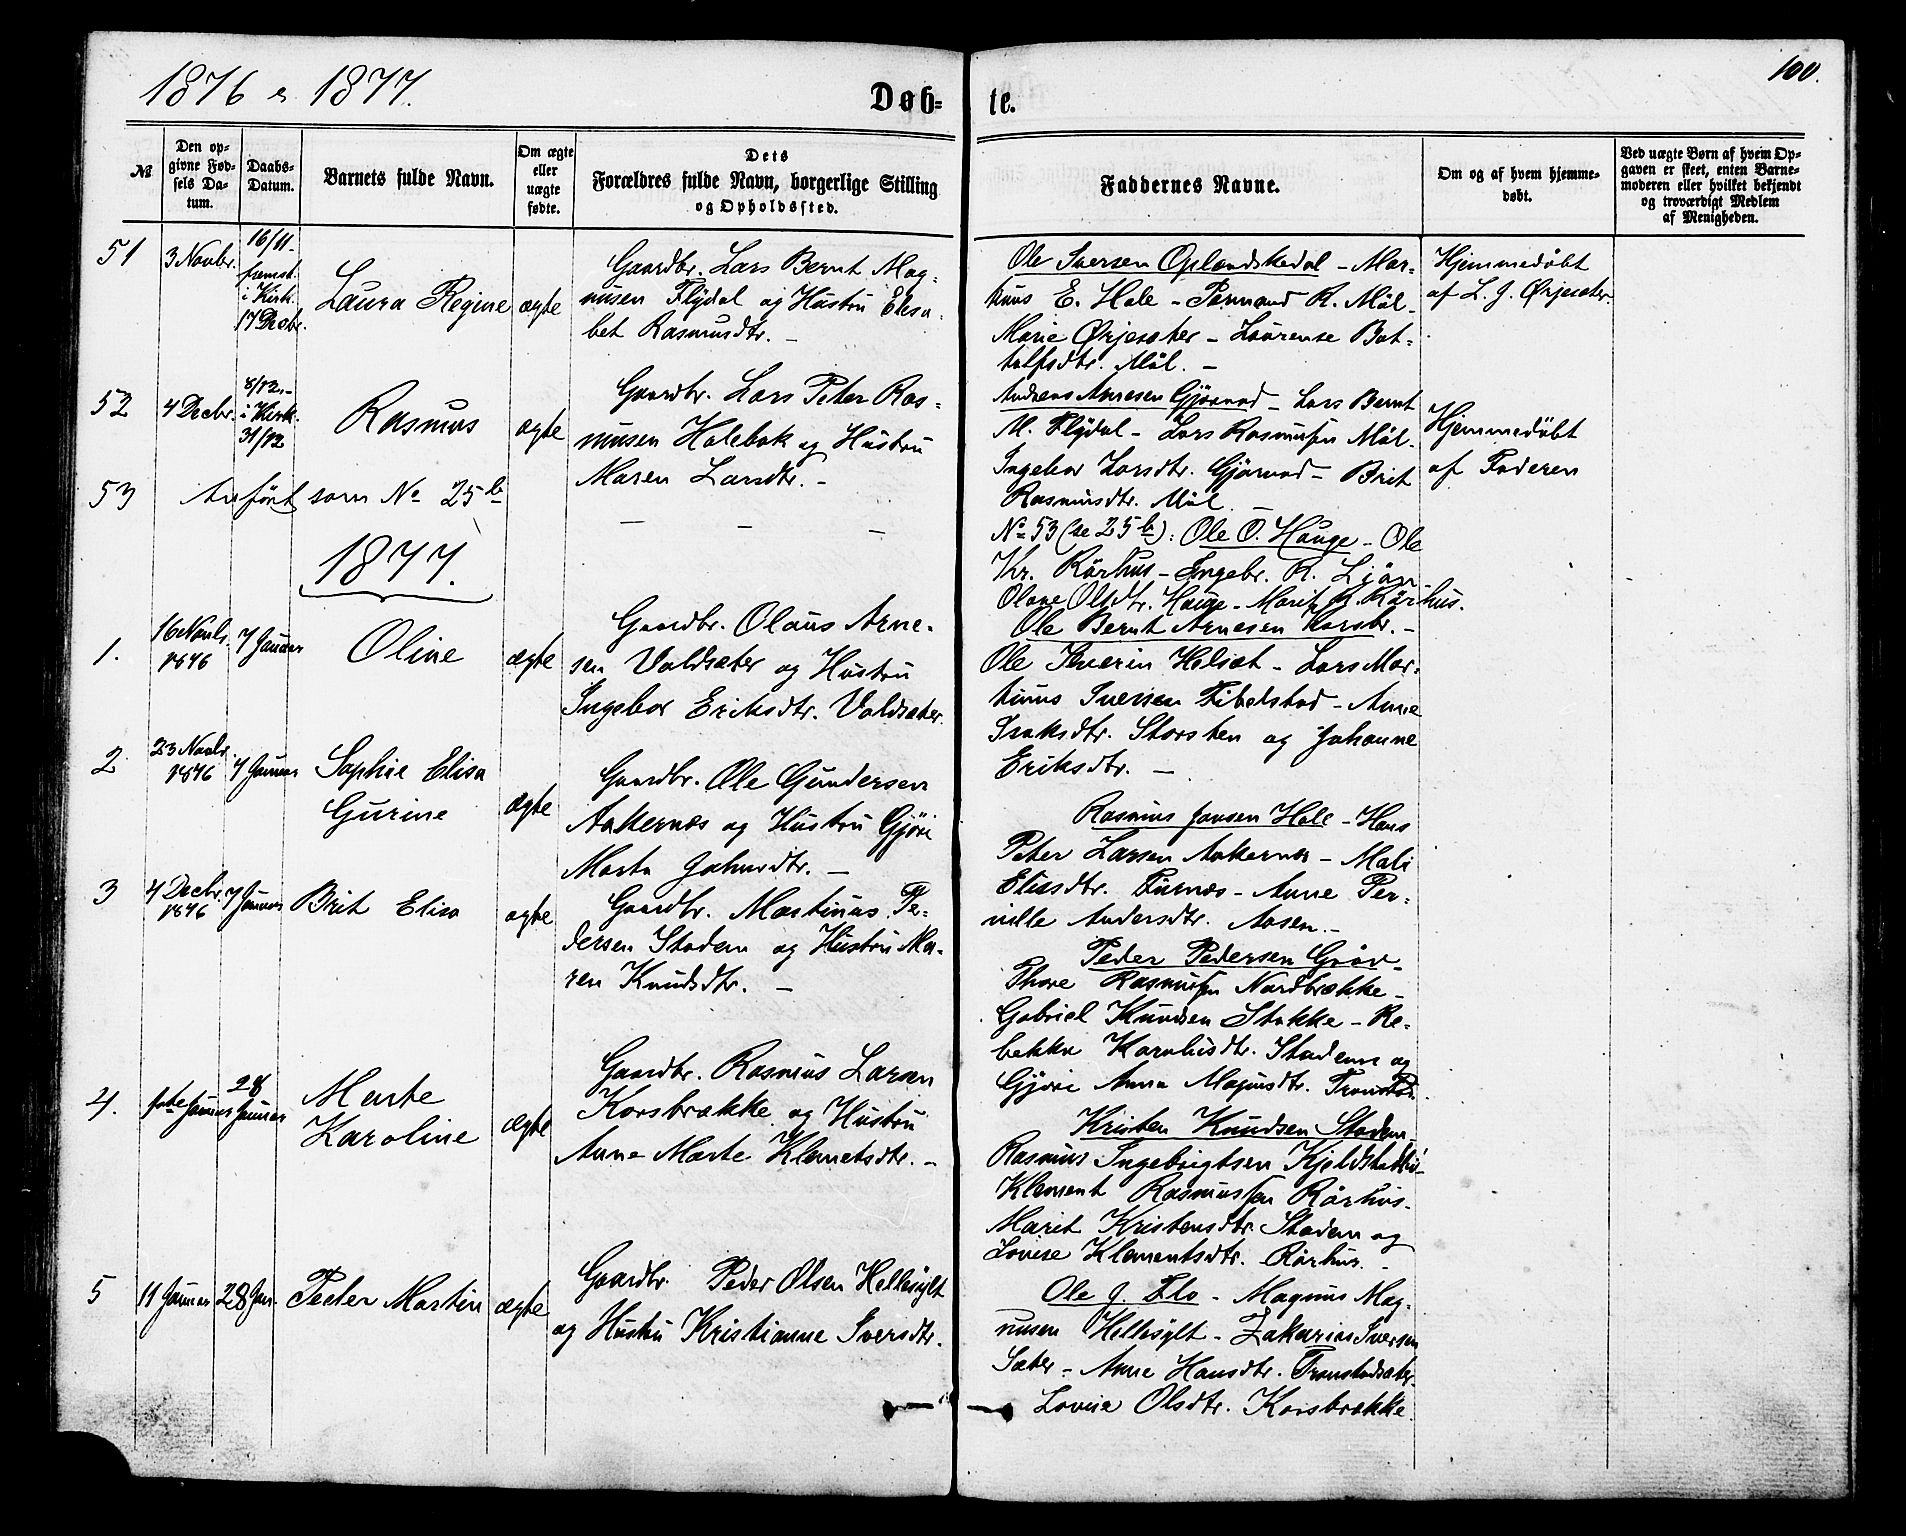 1876 & 1877.
Døb-
te.
100.
№
Den op-
givne Fød-
sels Da-
tum.
Daabs-
Datum.
Barnets fulde Navn.
Om ægte
eller
uægte
fødte.
Dets
Forældres fulde Navn, borgerlige Stilling
og Opholdssted.
Faddernes Navne.
Om og af hvem hjemme-
døbt.
Ved uægte Børn af hvem Op-
gaven er skeet, enten Barne-
moderen eller hvilket bekjendt
og troværdigt Medlem
af Menigheden.
51
3 Novbr.
16/11-
fremst.
i Kirk.
17 Decbr.
Laura Regine
ægte
Gaardbr. Lars Bernt Mag-
nusen Flydal og Hustru Elisa-
bet Rasmusdtr. -
Ole Iversen Oplendskedal - Mar-
thins E. Hole - Permand R. Møl-
Marie Ørjesæter - Laurense Bot-
tolfsdtr. Møl. -
Hjemmedøbt
af L. J. Ørjesæter
52
4 Decbr.
8/12.-
i Kirk.
31/12
Rasmus
ægte
Gaardbr. Lars Peter Ras-
musen Holebak og Hustru
Maren Larsdtr. -
Andreas Arnesen Gjørvad - Lars Bernt
M. Flydal - Lars Rasmusen Møl-
Ingebor Larsdtr. Gjørvad - Brit
Rasmusdtr. Møl. -
Hjemmedøbt
af Faderen
53
Anført som № 25b
- - -
№ 53 (se 25b): Ole O. Hauge - Ole
Kr. Rørhus - Ingebr. R. Ljøn -
Olave Olsdtr. Hauge - Marit K. Rørhus.
1877.
1.
16 Novbr.
1876
7 Januar
Oline
ægte
Gaardbr. Olaus Arne-
sen Valdsæter og Hustru
Ingebor Eriksdtr. Valdsæter.
Ole Bernt Arnesen Korsbr. -
Ole Severin Helset - Lars Mar-
tinus Iversen Fibelstad - Anne
Isaksdtr. Storsten og Johanne
Eriksdtr. -
2
23 Novbr.
1876
7 Januar
Sophie Elisa
Gurine
ægte
Gaardbr. Ole Gundersen
Aakernæs og Hustru Gjøri
Marta Johnsdtr. -
Rasmus Jonsen Hole - Hans
Peter Larsen Aakernæs - Mali
Eliasdtr. Furnæs - Anne Per-
nille Andersdtr. Aasen. -
3
4 Decbr.
1876
7 Januar
Brit Elisa
ægte
Gaardbr. Martinus Pe-
dersen Stadem og Hustru Ma-
ren Knudsdtr. -
Peder Pedersen Grøv -
Thore Rasmusen Nordbrække -
Gabriel Knudsen Stokke - Re-
bekka Kornliusdtr. Stadem og
Gjøri Anna Magnusdtr. Tronstad.
4.
1ste Januar
28
Januar
Marte
Karoline
ægte
Gaardbr. Rasmus Larsen
Korsbrække og Hustru
Anne Marte Klemetsdtr. -
Kristen Knudsen Stadem -
Rasmus Ingebrigtsen Kjeldstadli -
Klement Rasmusen Rørhus -
Marit Kristensdtr. Stadem og
Lovise Klementsdtr. Rørhus. -
5
11 Januar
28 Jan.
Peder Martin
ægte
Gaardbr. Peder Olsen Hellesylt
og Hustru Kristianne Iversdtr.
Ole J. Flo - Magnus Mag-
nusen Hellesylt - Zakarias Iversen
Sæter - Anne Hansdtr. Tronstadsæter
Lovise Olsdtr. Korsbrække.